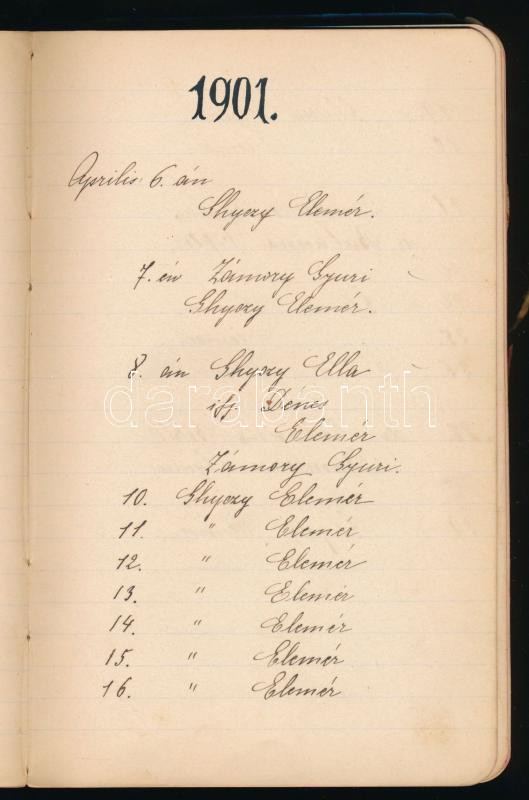 1901.
Április 6. án
Ghyczy Elemér.
7. én Zámory Gyuri
Ghyczy Elemér.
8. án Ghyczy Ella
ifj. Dénes
Elemér
Zámory Gyuri.
10. Ghyczy Elemér
11. " Elemér
12. " Elemér
13. " Elemér
14. " Elemér
15. " Elemér
16. " Elemér
darabanth